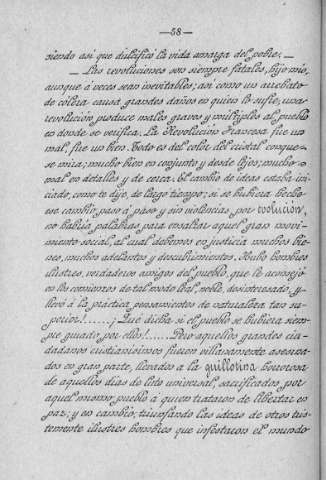 —58—
siendo así que dulcificó la vida amarga del pobre.—
— Las revoluciones son siempre fatales, hijo mío,
aunque á veces sean inevitables; así como un arrebato
de cólera causa grandes daños en quien lo sufre, una
revolución produce males graves y múltiples al pueblo
en donde se verifica. La Revolución Francesa fué un
mal, fué un bien. Todo es del color del cristal con que
se mira; mucho bien en conjunto y desde lejos; mucho
mal en detalles y de cerca. El cambio de ideas estaba ini-
ciado, como te dijo, de largo tiempo; si se hubiera hecho
ese cambio paso á paso y sin violencias, por evolución,
no habría palabras para ensalzar aquel gran movi-
miento social, al cual debemos en justicia muchos bie-
nes, muchos adelantos y descubrimientos. Hubo hombres
ilustres, verdaderos amigos del pueblo, que le aconsejó
en los comienzos de tal modo leal, noble, desinteresado, y
llevó á la práctica pensamientos de naturaleza tan su-
perior!......; Qué dicha si el pueblo se hubiera siem-
pre guiado por ellos!...... Pero aquellos grandes ciu-
dadanos cristianísimos fueron villanamente asesina-
dos en gran parte, llevados a la guillotina horrorosa
de aquellos días de luto universal, sacrificados por
aquel mismo pueblo á quien trataron de libertar en
paz; y en cambio, triunfando las ideas de otros tris-
temente ilustres hombres que infestaron el mundo